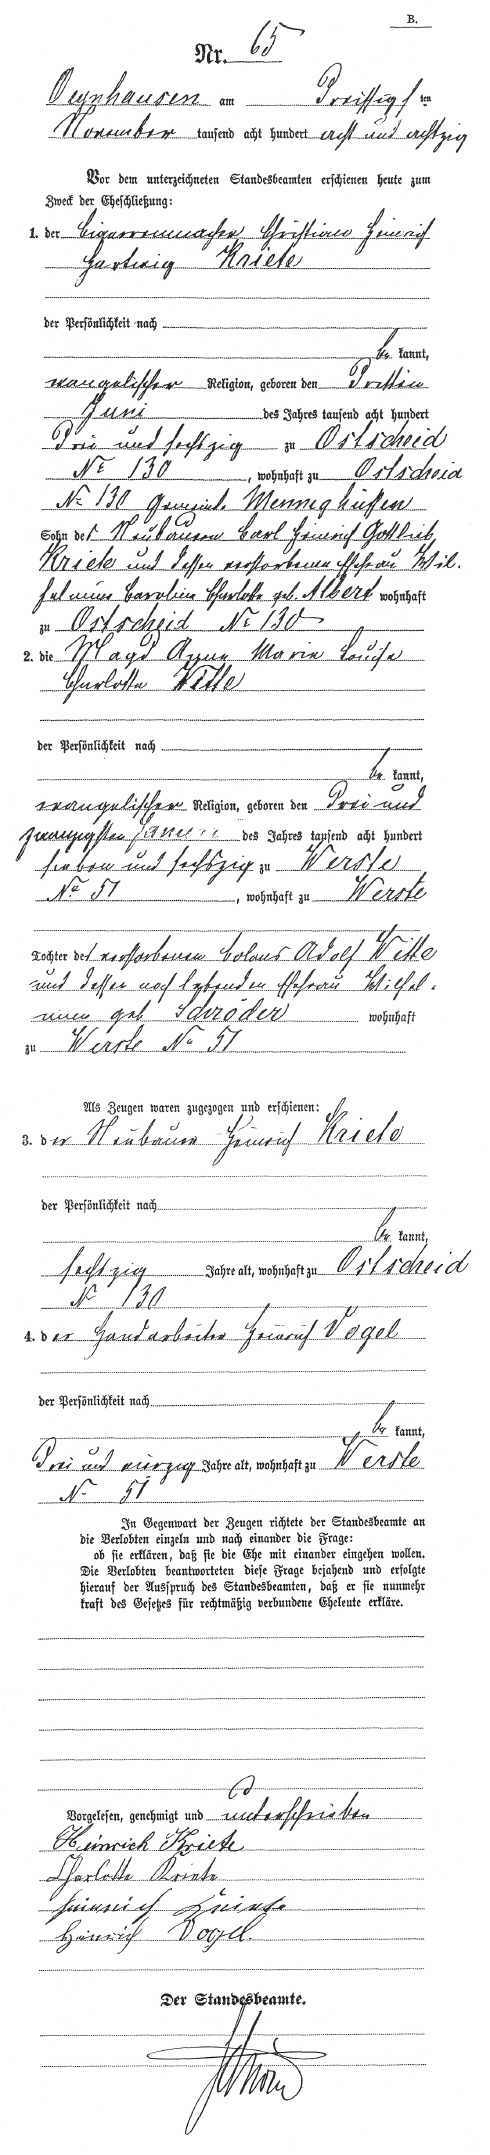 B.
Nr. 65
Oeynhausen am Dreissigsten
November tausend acht hundert acht und achtzig
Vor dem unterzeichneten Standesbeamten erschienen heute zum
Zweck der Eheschließung:
1. der Cigarrenmacher Christian Heinrich
Hartwig Kriete
der Persönlichkeit nach
be kannt,
evangelischer Religion, geboren den Dritten
Juni des Jahres tausend acht hundert
Drei und sechszig zu Ostscheid
No 130, wohnhaft zu Ostscheid
No 130 Gemeinde Mennighüffen
Sohn des Neubauern Carl Heinrich Gottlieb
Kriete und dessen verstorbenen Ehefrau Wil-
helmine Caroline Charlotte geb. Albert wohnhaft
zu Ostscheid No 130
2. die Magd Anne Marie Louise
Charlotte Witte
der Persönlichkeit nach
be kannt,
evangelischer Religion, geboren den Drei und
zwanzigsten Januar des Jahres tausend acht hundert
sieben und sechszig zu Werste
No 51, wohnhaft zu Werste
Tochter des verstorbenen Colons Adolf Witte
und dessen noch lebenden Ehefrau Wilhel-
mine geb. Schröder wohnhaft
zu Werste No 51
Als Zeugen waren zugezogen und erschienen:
3. der Neubauer Heinrich Kriete
der Persönlichkeit nach
be kannt,
sechszig Jahre alt, wohnhaft zu Ostscheid
No 130
4. der Handarbeiter Heinrich Vogel
der Persönlichkeit nach
be kannt,
Drei und vierzig Jahre alt, wohnhaft zu Werste
No 51
In Gegenwart der Zeugen richtete der Standesbeamte an
die Verlobten einzeln und nach einander die Frage:
ob sie erklären, daß sie die Ehe mit einander eingehen wollen.
Die Verlobten beantworteten diese Frage bejahend und erfolgte
hierauf der Ausspruch des Standesbeamten, daß er sie nunmehr
kraft des Gesetzes für rechtmäßig verbundene Eheleute erkläre.
Vorgelesen, genehmigt und unterschrieben
Heinrich Kriete
Charlotte Kriete
Heinrich Kriete
Heinrich Vogel.
Der Standesbeamte.